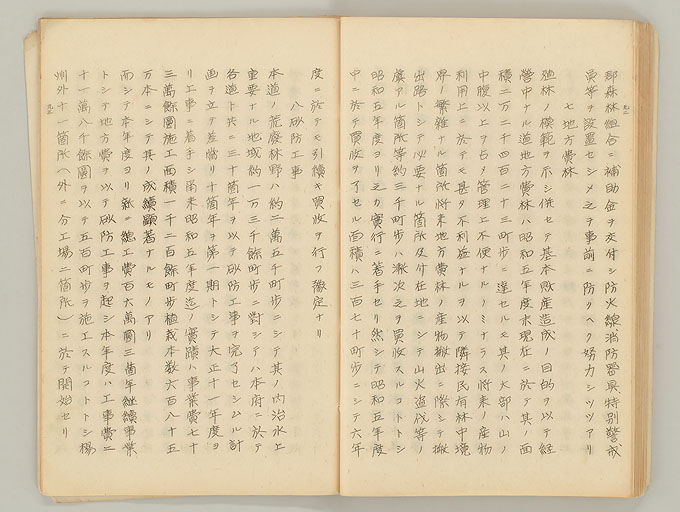 郡森林組合ニ補助金ヲ交付シ防火線消防器具特別警戒
員等ヲ設置セシメ之ヲ事前ニ防クヘク努力シツツアリ
七 地方費林
殖林ノ模範ヲ示シ併セテ基本財産造成ノ目的ヲ以テ経
営中ナル道地方費林ハ昭和五年度末現在ニ於テ其ノ面
積二万二千四百二十三町歩ニ達セルモ其ノ大部ハ山ノ
中腹以上ヲ占メ管理上不便ナルノミナラス将来ノ産物
利用上ニ於テモ甚タ不利益ナルヲ以テ隣接民有林中境
界ノ繁雑ナル箇所将来地方費林ノ産物搬出ニ際シテ搬
出路トシテ必要ナル箇所及付在地ニシテ山火盗伐等ノ
虞アル箇所等約三千町歩ハ漸次之ヲ買收スルコトトシ
昭和五年度ヨリ之カ実行ニ着手セリ然シテ昭和五年度
中ニ於テ買收ヲ了セル面積ハ三百七十町歩ニシテ六年
度ニ於テモ引續キ買收ヲ行フ豫定ナリ
八 砂防工事
本道ノ荒廃林野ハ約二萬五千町歩ニシテ其ノ内治水上
重要ナル地域約一万三千餘町歩ニ對シテハ本府ニ於テ
各道ト共ニ三十箇年ヲ以テ砂防工事ヲ完了セシムル計
画ヲ立テ差當リ十箇年ヲ第一期トシテ大正十一年度ヨ
リ工事ニ着手シ爾来昭和五年度迄ノ實蹟ハ事業費七十
三萬餘圓施工面積一千二百餘町歩植栽本数六百八十五
万本ニシテ其ノ成績顕著ナルモノアリ
而シテ本年度ヨリ新ニ總工費百六萬圓三箇年継續事業
トシテ地方費ヲ以テ砂防工事ヲ起シ本年度ハ工事費二
十一萬八千餘圓ヲ以テ五百町歩ヲ施工スルコトトシ楊
州外十一箇所(外ニ分工場二箇所)ニ於テ開始セリ